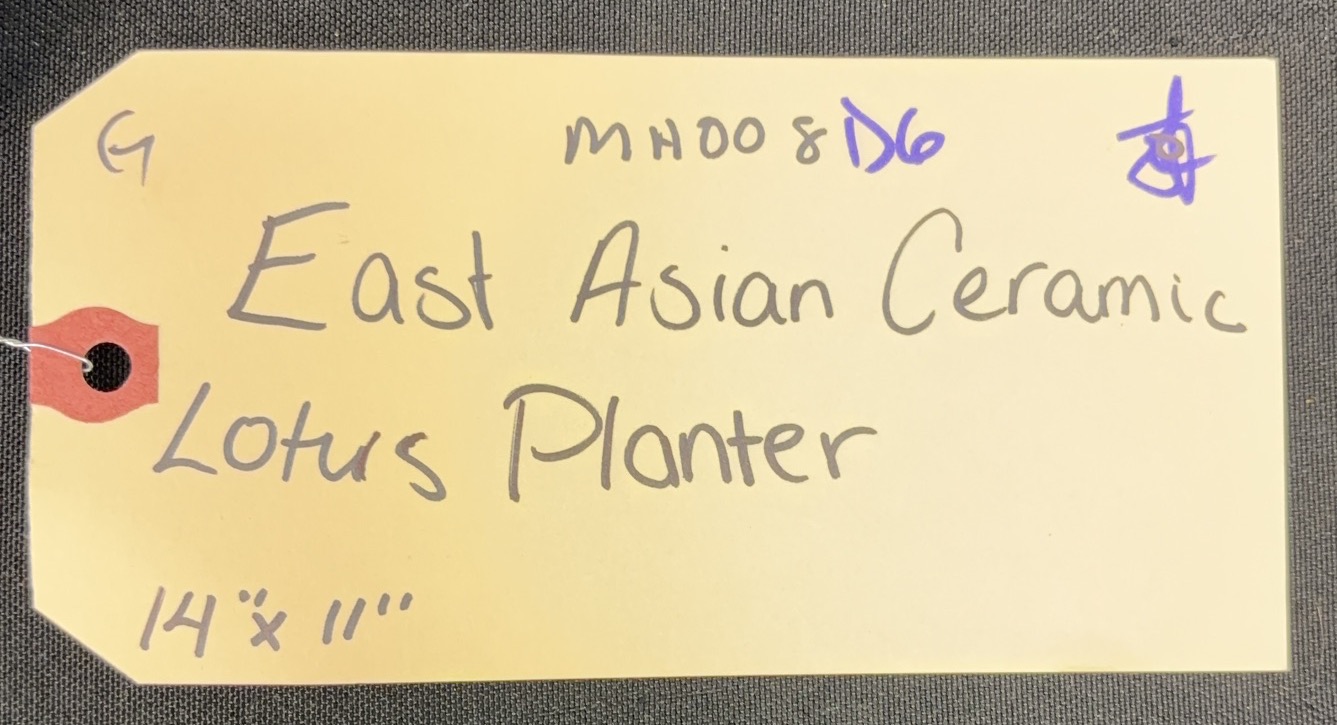 G MH008 D6
East Asian Ceramic
Lotus Planter
14" x 11"